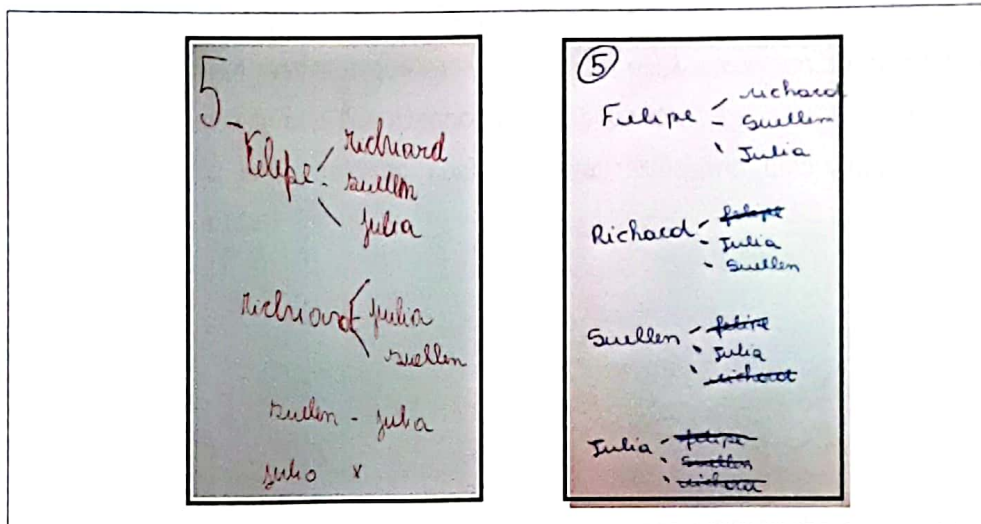 5-
Felipe
richriard
suellen
julia
richriard
julia
suellen
suellen - julia
julia x
5
Felipe
richard
Suellen
Julia
Richard
felipe
Julia
Suellen
Suellen
felipe
Julia
richard
Julia
felipe
Suellen
richard